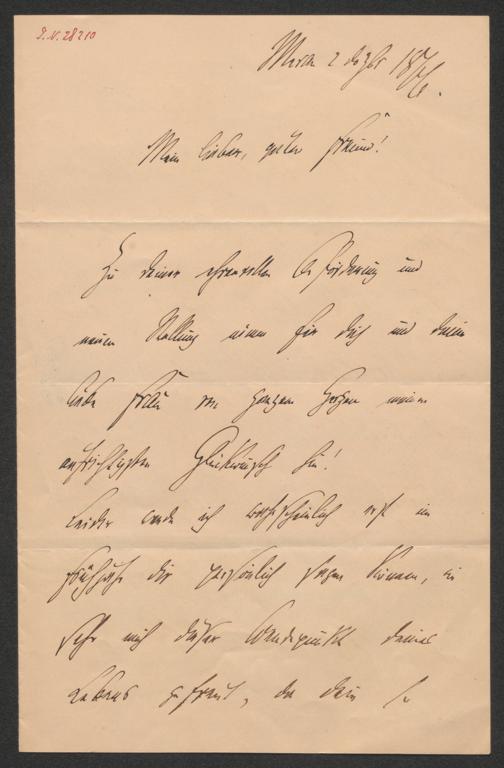 I.N. 28210
Meran 2 dezbr 1876.
Mein lieber, guter Freund!
Zu deiner ehrenvollen Beförderung und
neuen Stellung nimm für dich und deine
liebe Frau von ganzem Herzen meinen
aufrichtigsten Glückwunsch hin!
Leider werde ich wahrscheinlich erst im
Frühjahr dir persönlich sagen können, wie
sehr mich dieser Wendepunkt deines
Lebens gefreut, da dein